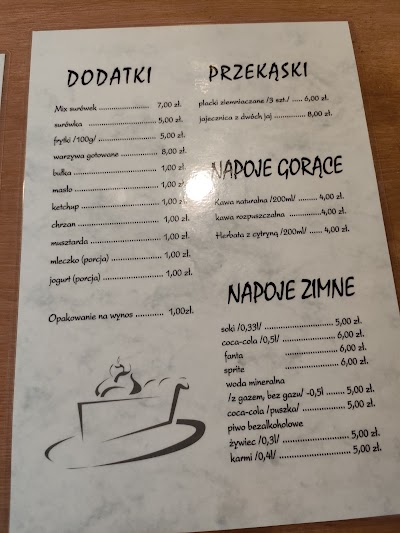 DODATKI
Mix surówek ........................ 7,00 zł.
surówka .............................. 5,00 zł.
frytki /100g/ ........................ 5,00 zł.
warzywa gotowane ............... 8,00 zł.
bułka ................................... 1,00 zł.
masło ................................... 1,00 zł.
ketchup ................................ 1,00 zł.
chrzan .................................. 1,00 zł.
musztarda ............................ 1,00 zł.
mleczko (porcja) ................... 1,00 zł.
jogurt (porcja) ...................... 1,00 zł.
Opakowanie na wynos ............. 1,00zł.
PRZEKĄSKI
placki ziemniaczane /3 szt./ ..... 6,00 zł.
jajecznica z dwóch jaj ............. 8,00 zł.
NAPOJE GORĄCE
Kawa naturalna /200ml/ ......... 4,00 zł.
kawa rozpuszczalna ..............4,00 zł.
Herbata z cytryną /200ml/ ...... 4,00 zł.
NAPOJE ZIMNE
soki /0,33l/ .......................... 5,00 zł.
coca-cola /0,5l/ ..................... 6,00 zł.
fanta ..................... 6,00 zł.
sprite ..................... 6,00 zł.
woda mineralna
/z gazem, bez gazu/ -0,5l ........ 5,00 zł.
coca-cola /puszka/ ................ 5,00 zł.
piwo bezalkoholowe
żywiec /0,3l/ ........................ 5,00 zł.
karmi /0,4l/ .......................... 5,00 zł.